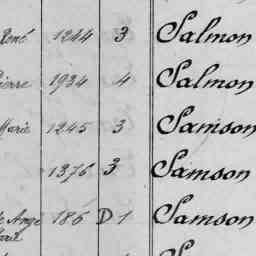 René 1244 3 Salmon
ierre 1934 4 Salmon
Marie 1245 3 Samson
1376 3 Samson
de Ange 186 D 1 Samson
Marie